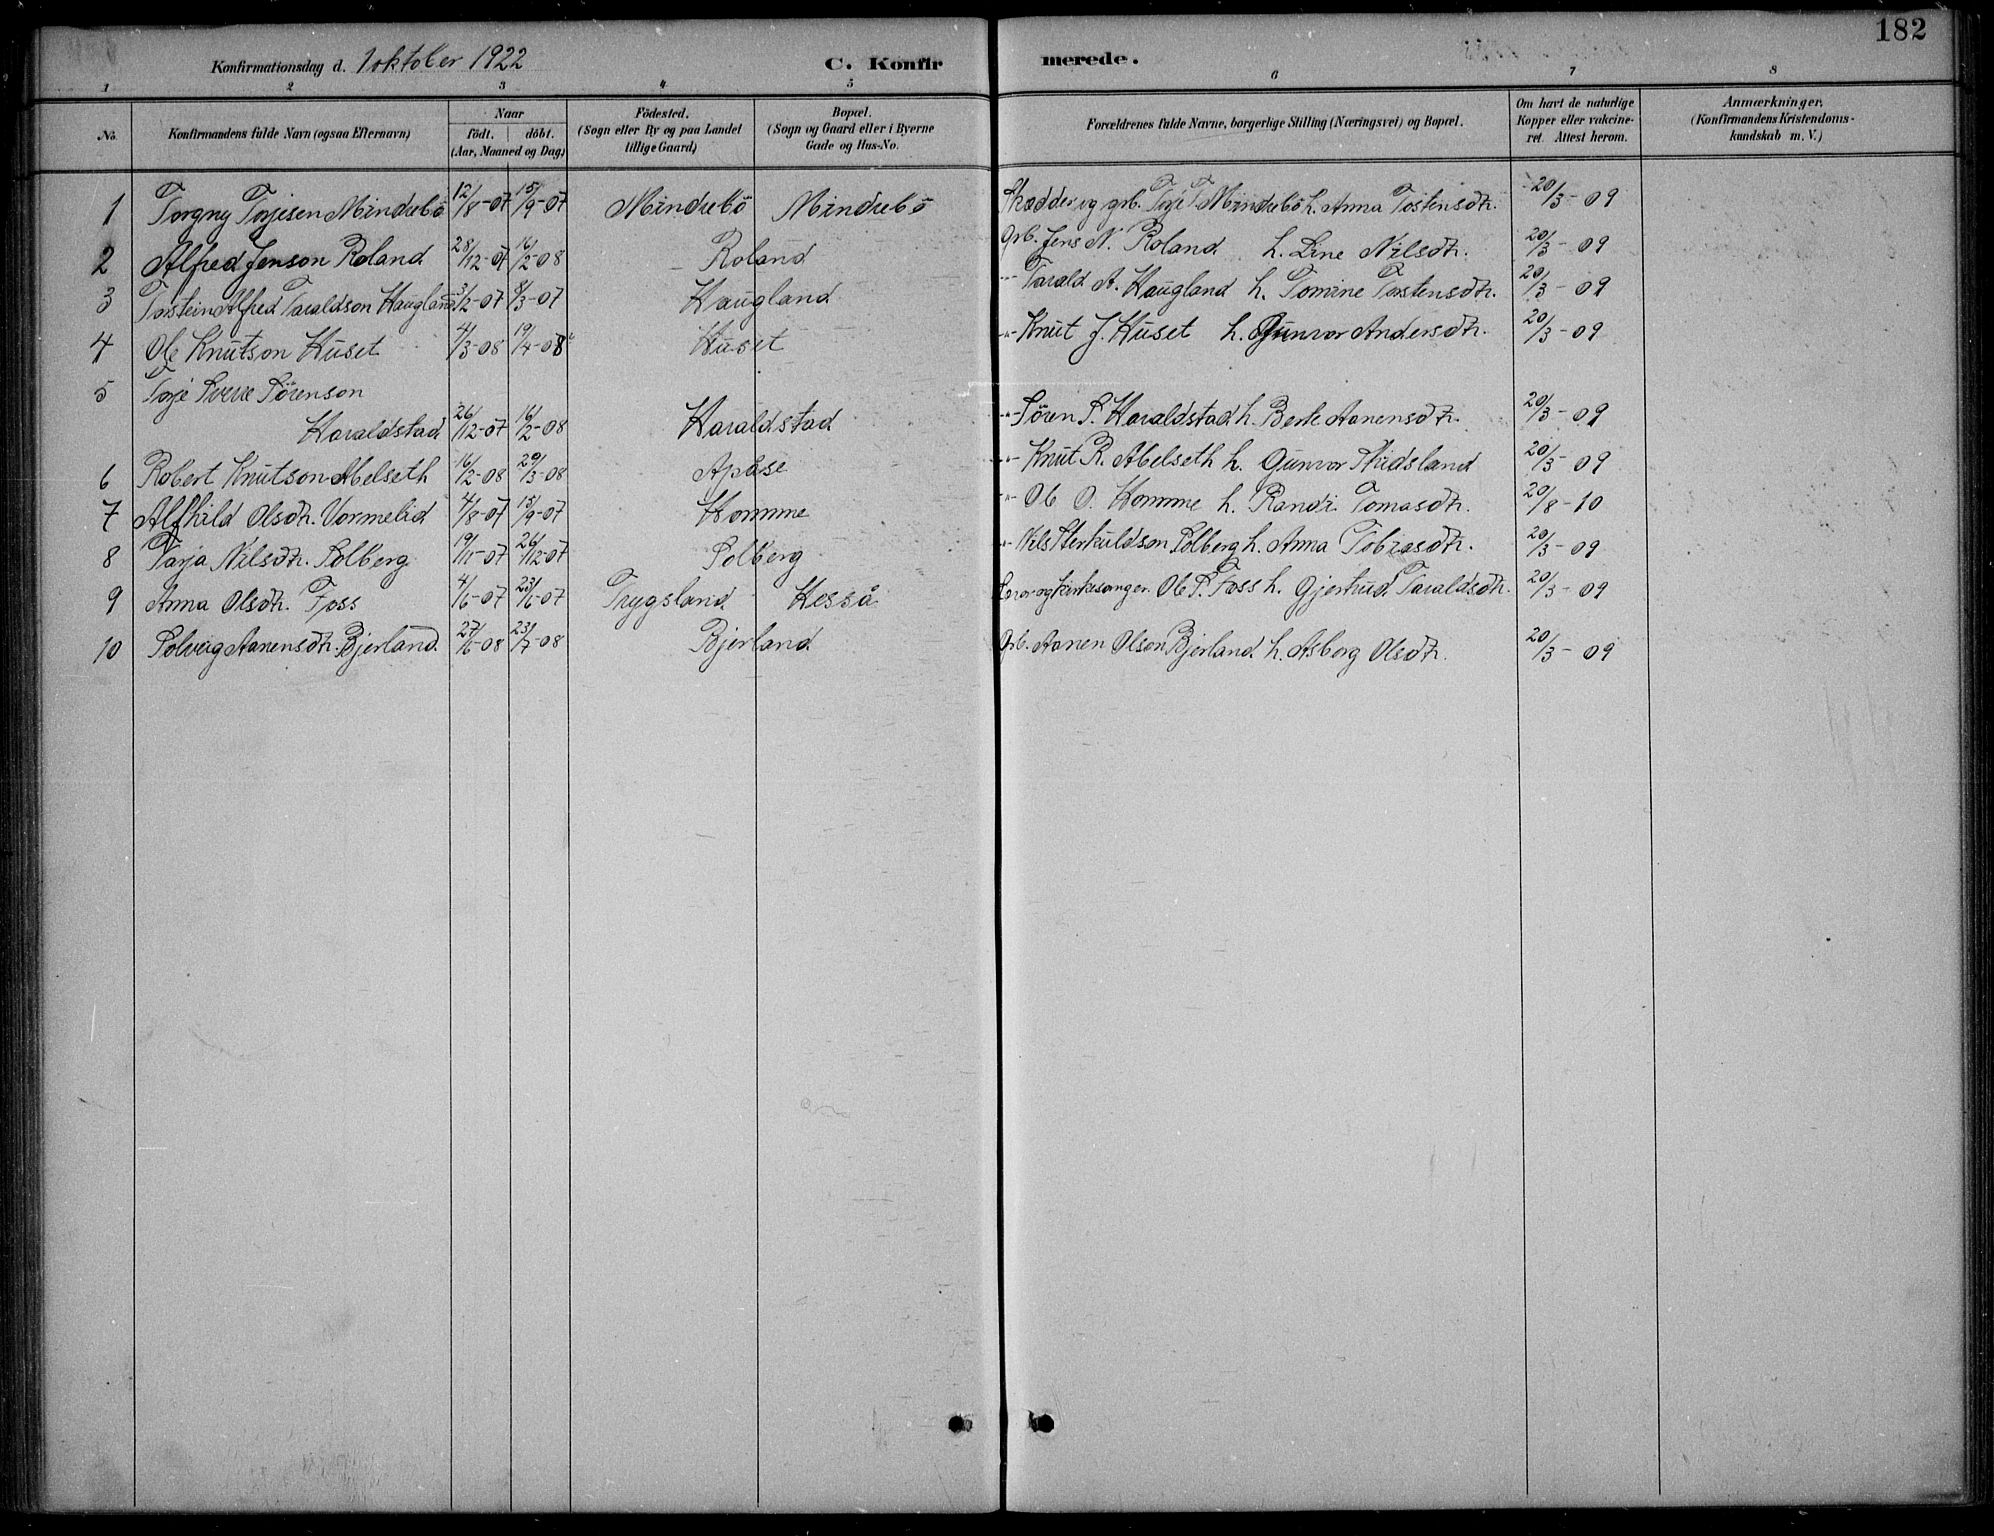 182
Konfirmationsdag d. 1 oktober 1922 C. Konfirmerede.
1 2 3 4 5 6 7 8
No. Konfirmandens fulde Navn (ogsaa Efternavn) Naar födt. döbt. (Aar, Maaned og Dag) Födested. (Sogn eller By og paa Landet tillige Gaard) Bopæl. (Sogn og Gaard eller i Byerne Gade og Hus-No. Forældrenes fulde Navne, borgerlige Stilling (Næringsvei) og Bopæl. Om havt de naturlige Kopper eller vakcineret. Attest herom. Anmærkninger. (Konfirmandens Kristendomskundskab m. V.)
1 Torgny Torjesen Mindrebö 12/8-07 15/9-07 Mindrebö Mindrebö Skædder og grb. Torje T Mindrebö h. Anna Tostensdtr. 20/3-09
2 Alfred Jenson Roland 28/12-07 16/2-08 Roland Grb. Jens N. Roland h. Line Nilsdtr. 20/3-09
3 Torstein Alfred Taraldson Haugland 3/2-07 8/3-07 Haugland -"- Tarald A. Haugland h. Tomine Torstensdtr. 20/3-09
4 Ole Knutson Huset 4/3-08 19/4-08 Huset -"- Knut J. Huset h. Gunvor Andersdtr. 20/3-09
5 Torje Sverre Sörenson
Haraldstad 26/12-07 16/2-08 Haraldstad -"- Sören S. Haraldstad h. Berte Aanensdtr. 20/3-09
6 Robert Knutson Abelseth 16/2-08 29/3-08 Apåse -"- Knut R. Abelseth h. Gunvor Skidsland 20/3-09
7 Alfhild Olsdtr. Vormelid 4/8-07 15/9-07 Homme -"- Ole O. Homme h. Randi Tomasdtr. 20/8-10
8 Tarja Nilsdtr. Solberg 19/11-07 26/12-07 Solberg -"- Nils Sterkuldson Solberg h. Anna Tobiasdtr. 20/3-09
9 Anna Olsdtr. Foss 4/6-07 23/6-07 Trygsland Hesså Lærer og kirkesanger Ole P. Foss h. Gjertrud Taraldsdtr. 20/3-09
10 Solveig Aanensdtr. Bjerland 27/6-08 23/7-08 Bjerland Grb. Aanen Olson Bjerland h. Asberg Olsdtr. 20/3-09